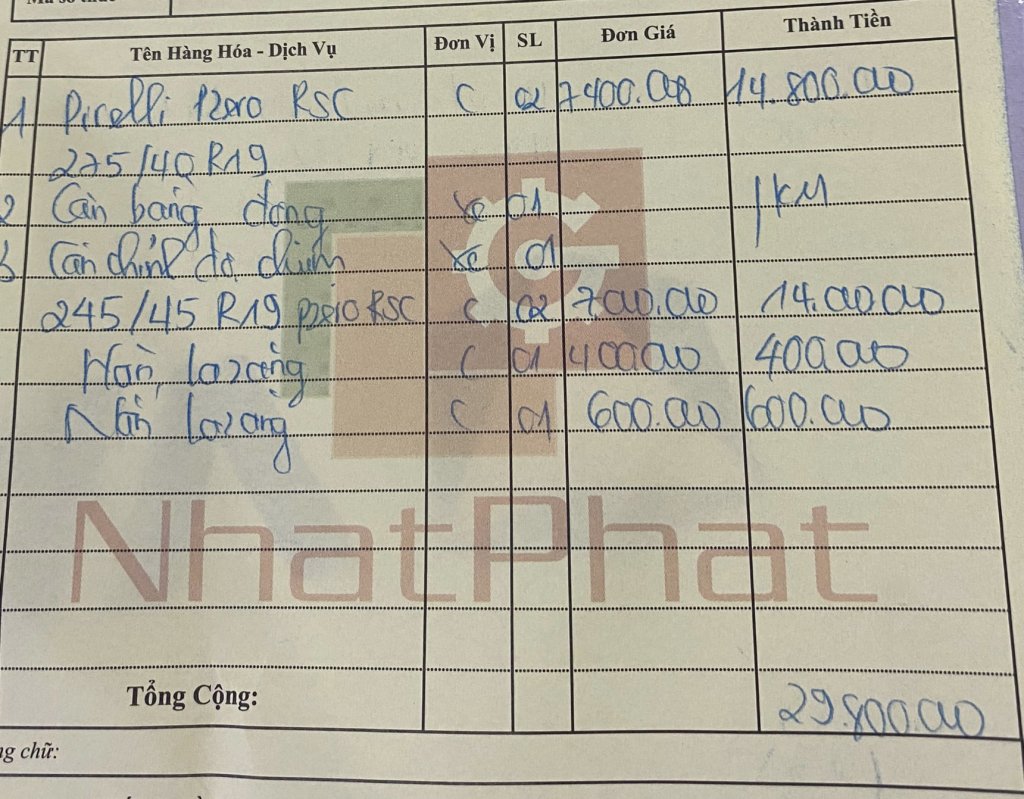 TT Tên Hàng Hóa - Dịch Vụ Đơn Vị SL Đơn Giá Thành Tiền
1 Pirelli Pzero RSC C 02 7400.000 14.800.000
275/40 R19
2 Cân bằng động xe 01 / KM
3 Cân chỉnh độ chụm xe 01
245/45 R19 pzero RSC C 02 7000.000 14.000.000
Hàn lazăng C 01 400.000 400.000
Nắn lazang C 01 600.000 600.000
NhatPhat
Tổng Cộng: 29.800.000
chữ: